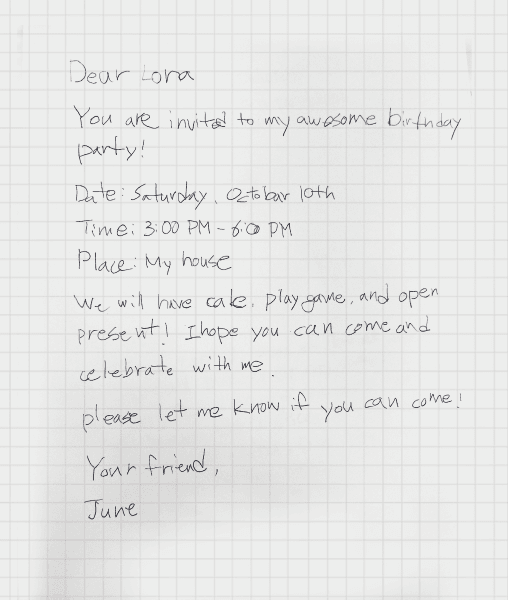 Dear Lora
You are invited to my awosome birthday
party!
Date: Saturday, Octobar 10th
Time: 3:00 PM - 6:0 PM
Place: My house
We will have cake, play game, and open
present! I hope you can come and
celebrate with me.
please let me know if you can come!
Your friend,
June